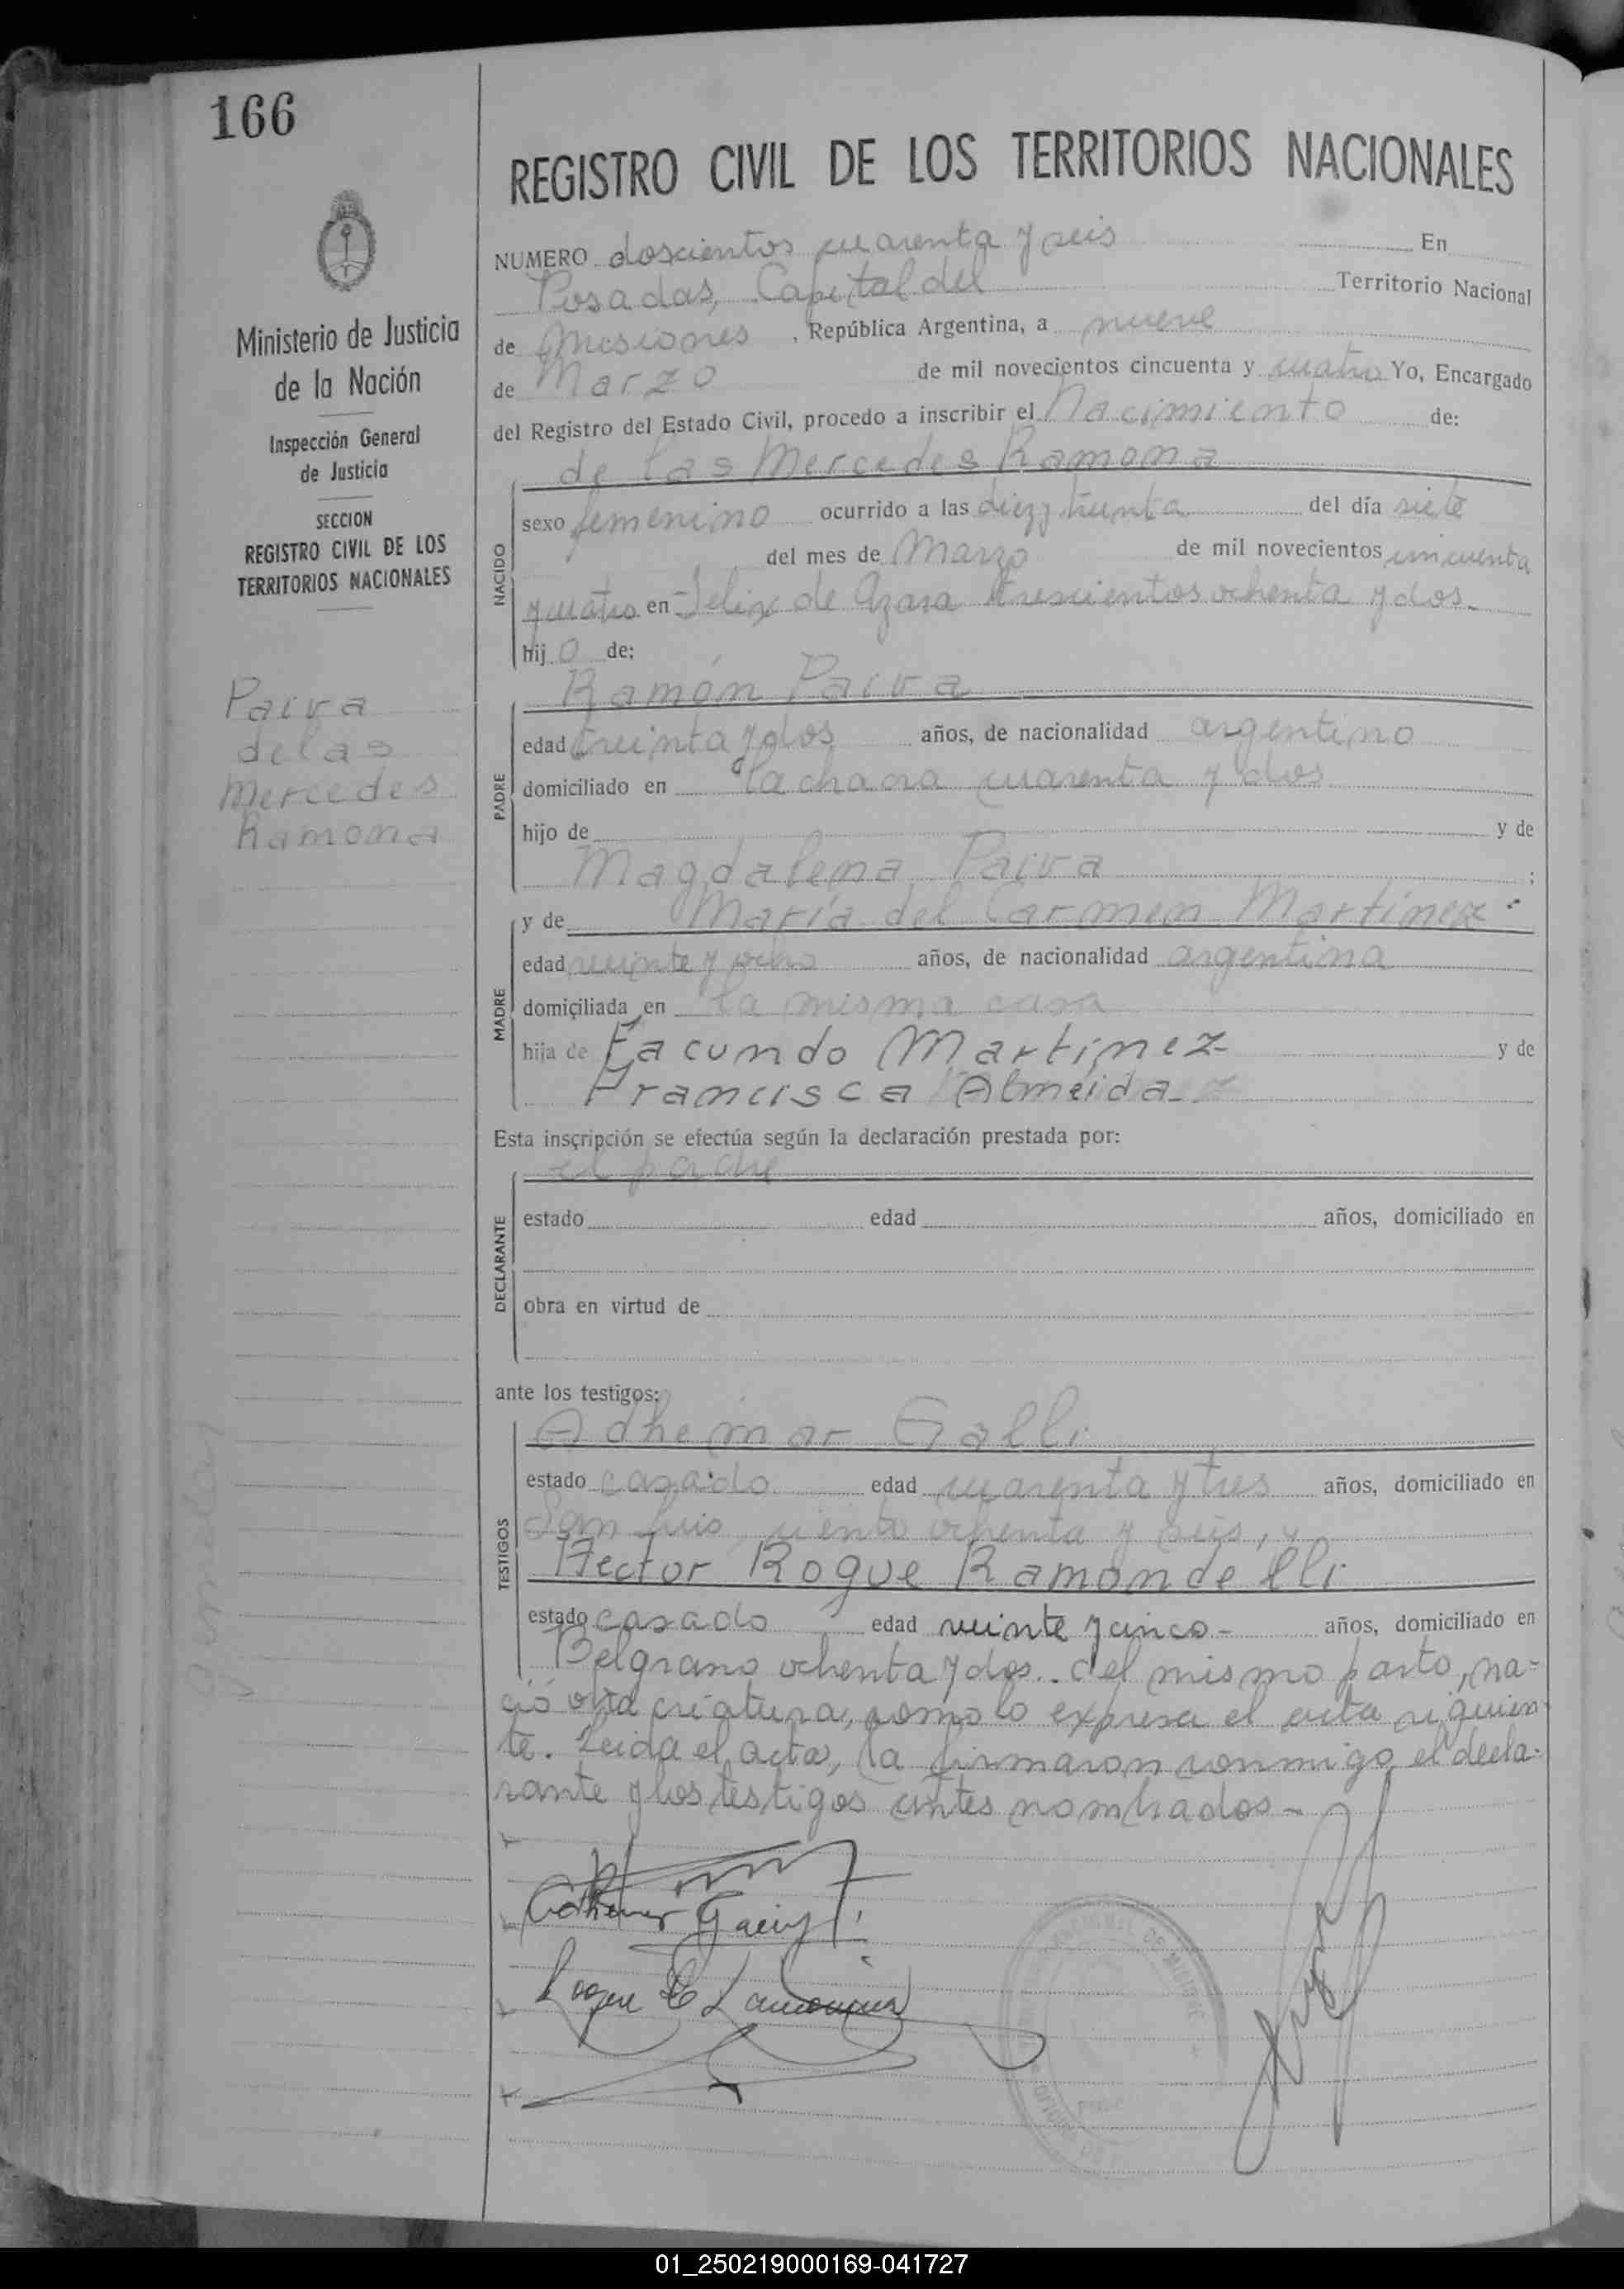 166
REGISTRO CIVIL DE LOS TERRITORIOS NACIONALES
Ministerio de Justicia
de la Nación
Inspección General
de Justicia
SECCION
REGISTRO CIVIL DE LOS
TERRITORIOS NACIONALES
Paiva
de las
Mercedes
Ramona
NUMERO doscientos cuarenta y seis En
Posadas, Capital del Territorio Nacional
de Misiones, República Argentina, a nueve
de Marzo de mil novecientos cincuenta y cuatro Yo, Encargado
del Registro del Estado Civil, procedo a inscribir el Nacimiento de:
de las Mercedes Ramona
NACIDO
sexo femenino ocurrido a las diez y treinta del día siete
del mes de Marzo de mil novecientos cincuenta
y cuatro en Felix de Azara trescientos ochenta y dos.
hij o de:
Ramón Paiva
PADRE
edad treinta y dos años, de nacionalidad argentino
domiciliado en la chacra cuarenta y dos
hijo de y de
Magdalena Paiva ;
y de María del Carmen Martínez
MADRE
edad veinte y ocho años, de nacionalidad argentina
domiciliada en la misma casa
hija de Facundo Martínez y de
Francisca Almeida
Esta inscripción se efectúa según la declaración prestada por:
el padre
DECLARANTE
estado edad años, domiciliado en
obra en virtud de
ante los testigos:
Adhemar Galli
TESTIGOS
estado casado edad cuarenta y tres años, domiciliado en
San Luis, ciento ochenta y seis, y
Hector Roque Ramondelli
estado casado edad veinte y cinco - años, domiciliado en
Belgrano ochenta y dos. del mismo parto, na-
ció otra criatura, como lo expresa el acta siguien
te. Leida el acta, la firmaron conmigo el decla-
rante y los testigos antes nombrados -
01_250219000169-041727